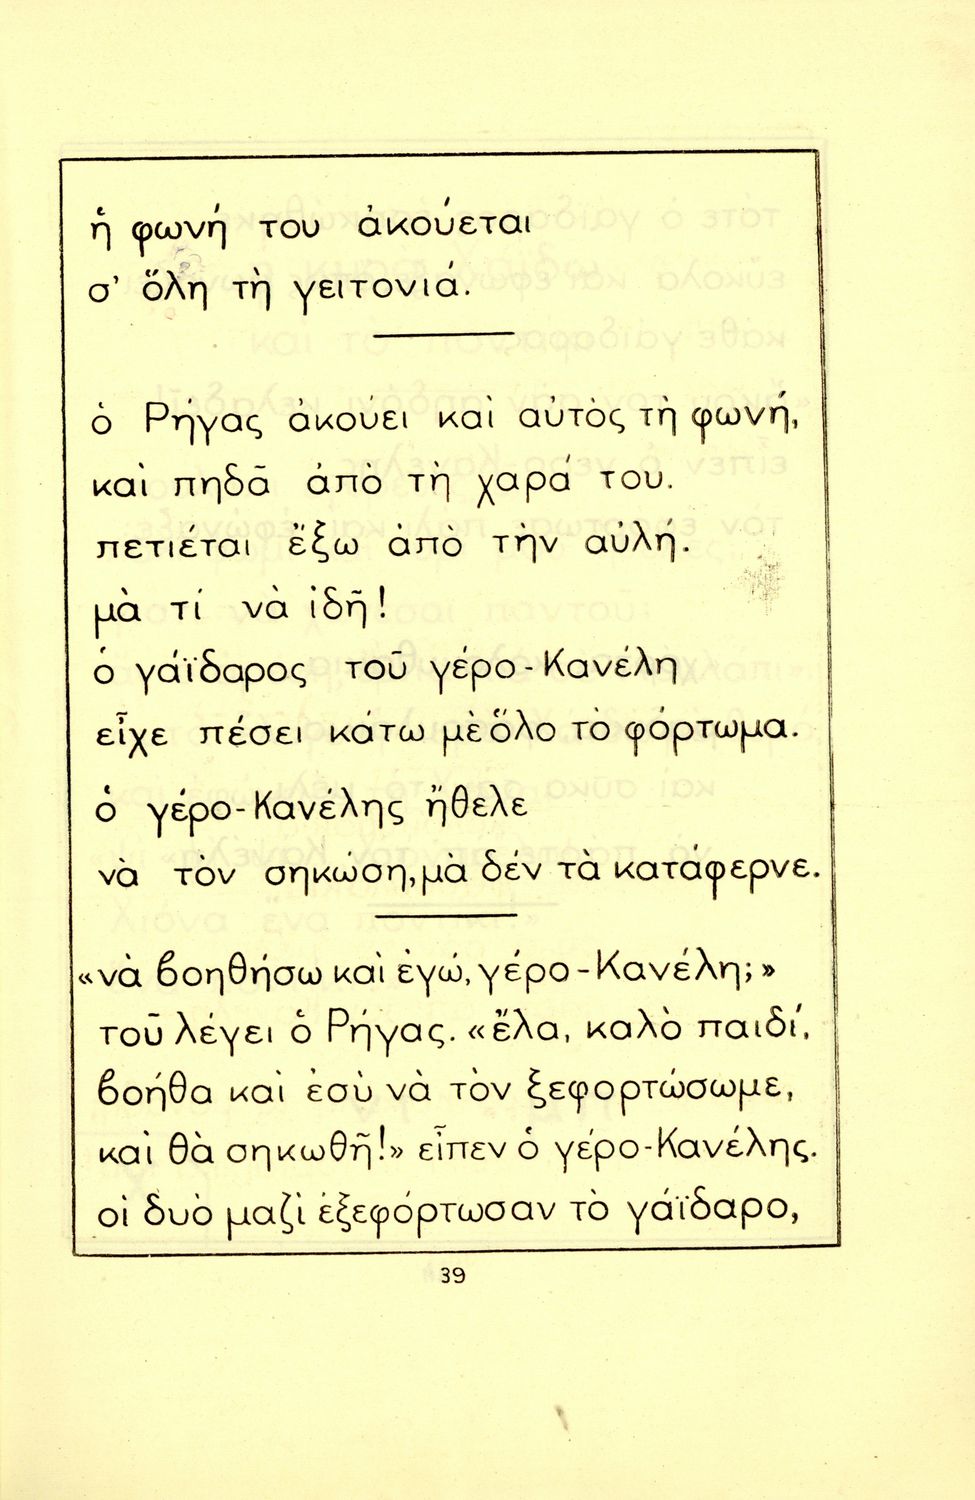 ἡ φωνή του ἀκούεται
σ' ὅλη τὴ γειτονιά.
ὁ Ρήγας ἀκούει καὶ αὐτὸς τὴ φωνή,
καὶ πηδᾶ ἀπὸ τὴ χαρά του.
πετιέται ἔξω ἀπὸ τὴν αὐλή.
μὰ τί νὰ ἰδῆ!
ὁ γάϊδαρος τοῦ γέρο-Κανέλη
εἶχε πέσει κάτω μὲ ὅλο τὸ φόρτωμα.
ὁ γέρο-Κανέλης ἤθελε
νὰ τὸν σηκώση, μὰ δέν τὰ κατάφερνε.
«νὰ βοηθήσω καὶ ἐγώ, γέρο-Κανέλη;»
τοῦ λέγει ὁ Ρήγας. «ἔλα, καλὸ παιδί,
βοήθα καὶ ἐσὺ νὰ τὸν ξεφορτώσωμε,
καὶ θὰ σηκωθῆ!» εἶπεν ὁ γέρο-Κανέλης.
οἱ δυὸ μαζὶ ἐξεφόρτωσαν τὸ γάϊδαρο,
39